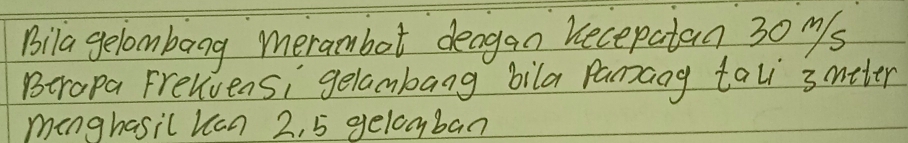 Bila gelombang merambat dengan kecepatan 30 m/s
Berapa Frekuensi gelambang bila Panzang tali 3 meter
menghasil kan 2,5 gelomban